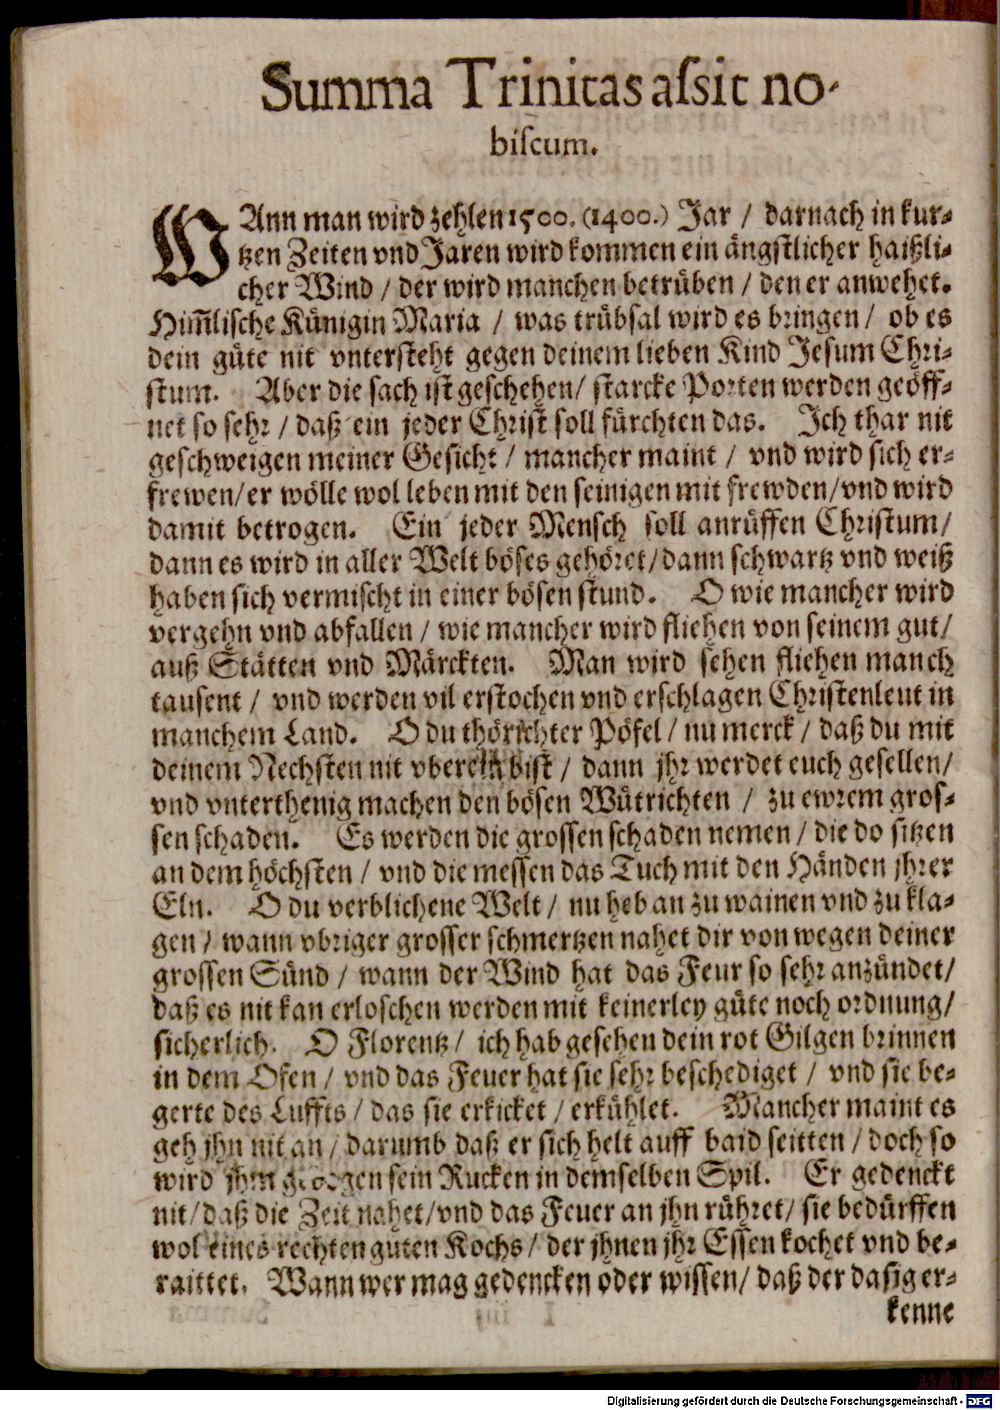 Summa Trinitas aſsit no-
biſcum.
WAnn man wird zehlen 1500. (1400.) Jar / darnach in kur-
tzen Zeiten vnd Jaren wird kommen ein ängstlicher haißli-
cher Wind / der wird manchen betrüben / den er anwehet.
Him̃lische Künigin Maria / was trübsal wird es bringen / ob es
dein güte nit vntersteht gegen deinem lieben Kind Jesum Chri-
stum. Aber die sach ist geschehen / starcke Porten werden geöff-
net so sehr / daß ein jeder Christ soll fürchten das. Ich thar nit
geschweigen meiner Gesicht / mancher maint / vnd wird sich er-
frewen / er wölle wol leben mit den seinigen mit frewden / vnd wird
damit betrogen. Ein jeder Mensch soll anrüffen Christum /
dann es wird in aller Welt böses gehöret / dann schwartz vnd weiß
haben sich vermischt in einer bösen stund. O wie mancher wird
vergehn vnd abfallen / wie mancher wird fliehen von seinem gut /
auß Stätten vnd Märckten. Man wird sehen fliehen manch
tausent / vnd werden vil erstochen vnd erschlagen Christenleut in
manchem Land. O du thörichter Pöfel / nu merck / daß du mit
deinem Nechsten nit vberein bist / dann jhr werdet euch gesellen /
vnd vnterthenig machen den bösen Wütrichten / zu ewrem gros-
sen schaden. Es werden die grossen schaden nemen / die do sitzen
an dem höchsten / vnd die messen das Tuch mit den Händen jhrer
Eln. O du verblichene Welt / nu heb an zu wainen vnd zu kla-
gen / wann vbriger grosser schmertzen nahet dir von wegen deiner
grossen Sünd / wann der Wind hat das Feur so sehr anzündet /
daß es nit kan erloschen werden mit keinerley güte noch ordnung /
sicherlich. O Florentz / ich hab gesehen dein rot Gilgen brinnen
in dem Ofen / vnd das Feuer hat sie sehr beschediget / vnd sie be-
gerte des Luffts / das sie erkicket / erkühlet. Mancher maint es
geh jhn nit an / darumb daß er sich helt auff baid seitten / doch so
wird jhm sein Rucken in demselben Spil. Er gedenckt
nit / daß die Zeit nahet / vnd das Feuer an jhn rühret / sie bedürffen
wol eines rechten guten Kochs / der jhnen jhr Essen kochet vnd be-
raittet. Wann wer mag gedencken oder wissen / daß der dasig er-
kenne
Digitalisierung gefördert durch die Deutsche Forschungsgemeinschaft - DFG